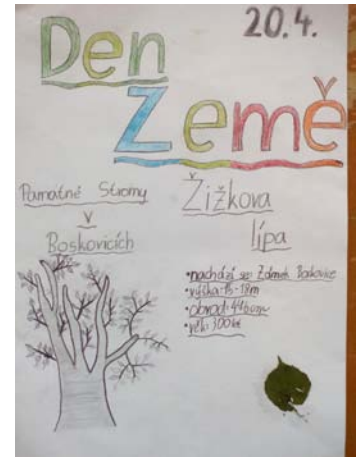 20.4.
Den
Země
Památné Stromy
v
Boskovicích
Žižkova
lípa
•nachází se: Zámek Boskovice
•výška:
•obvod:
•věk: 300 let